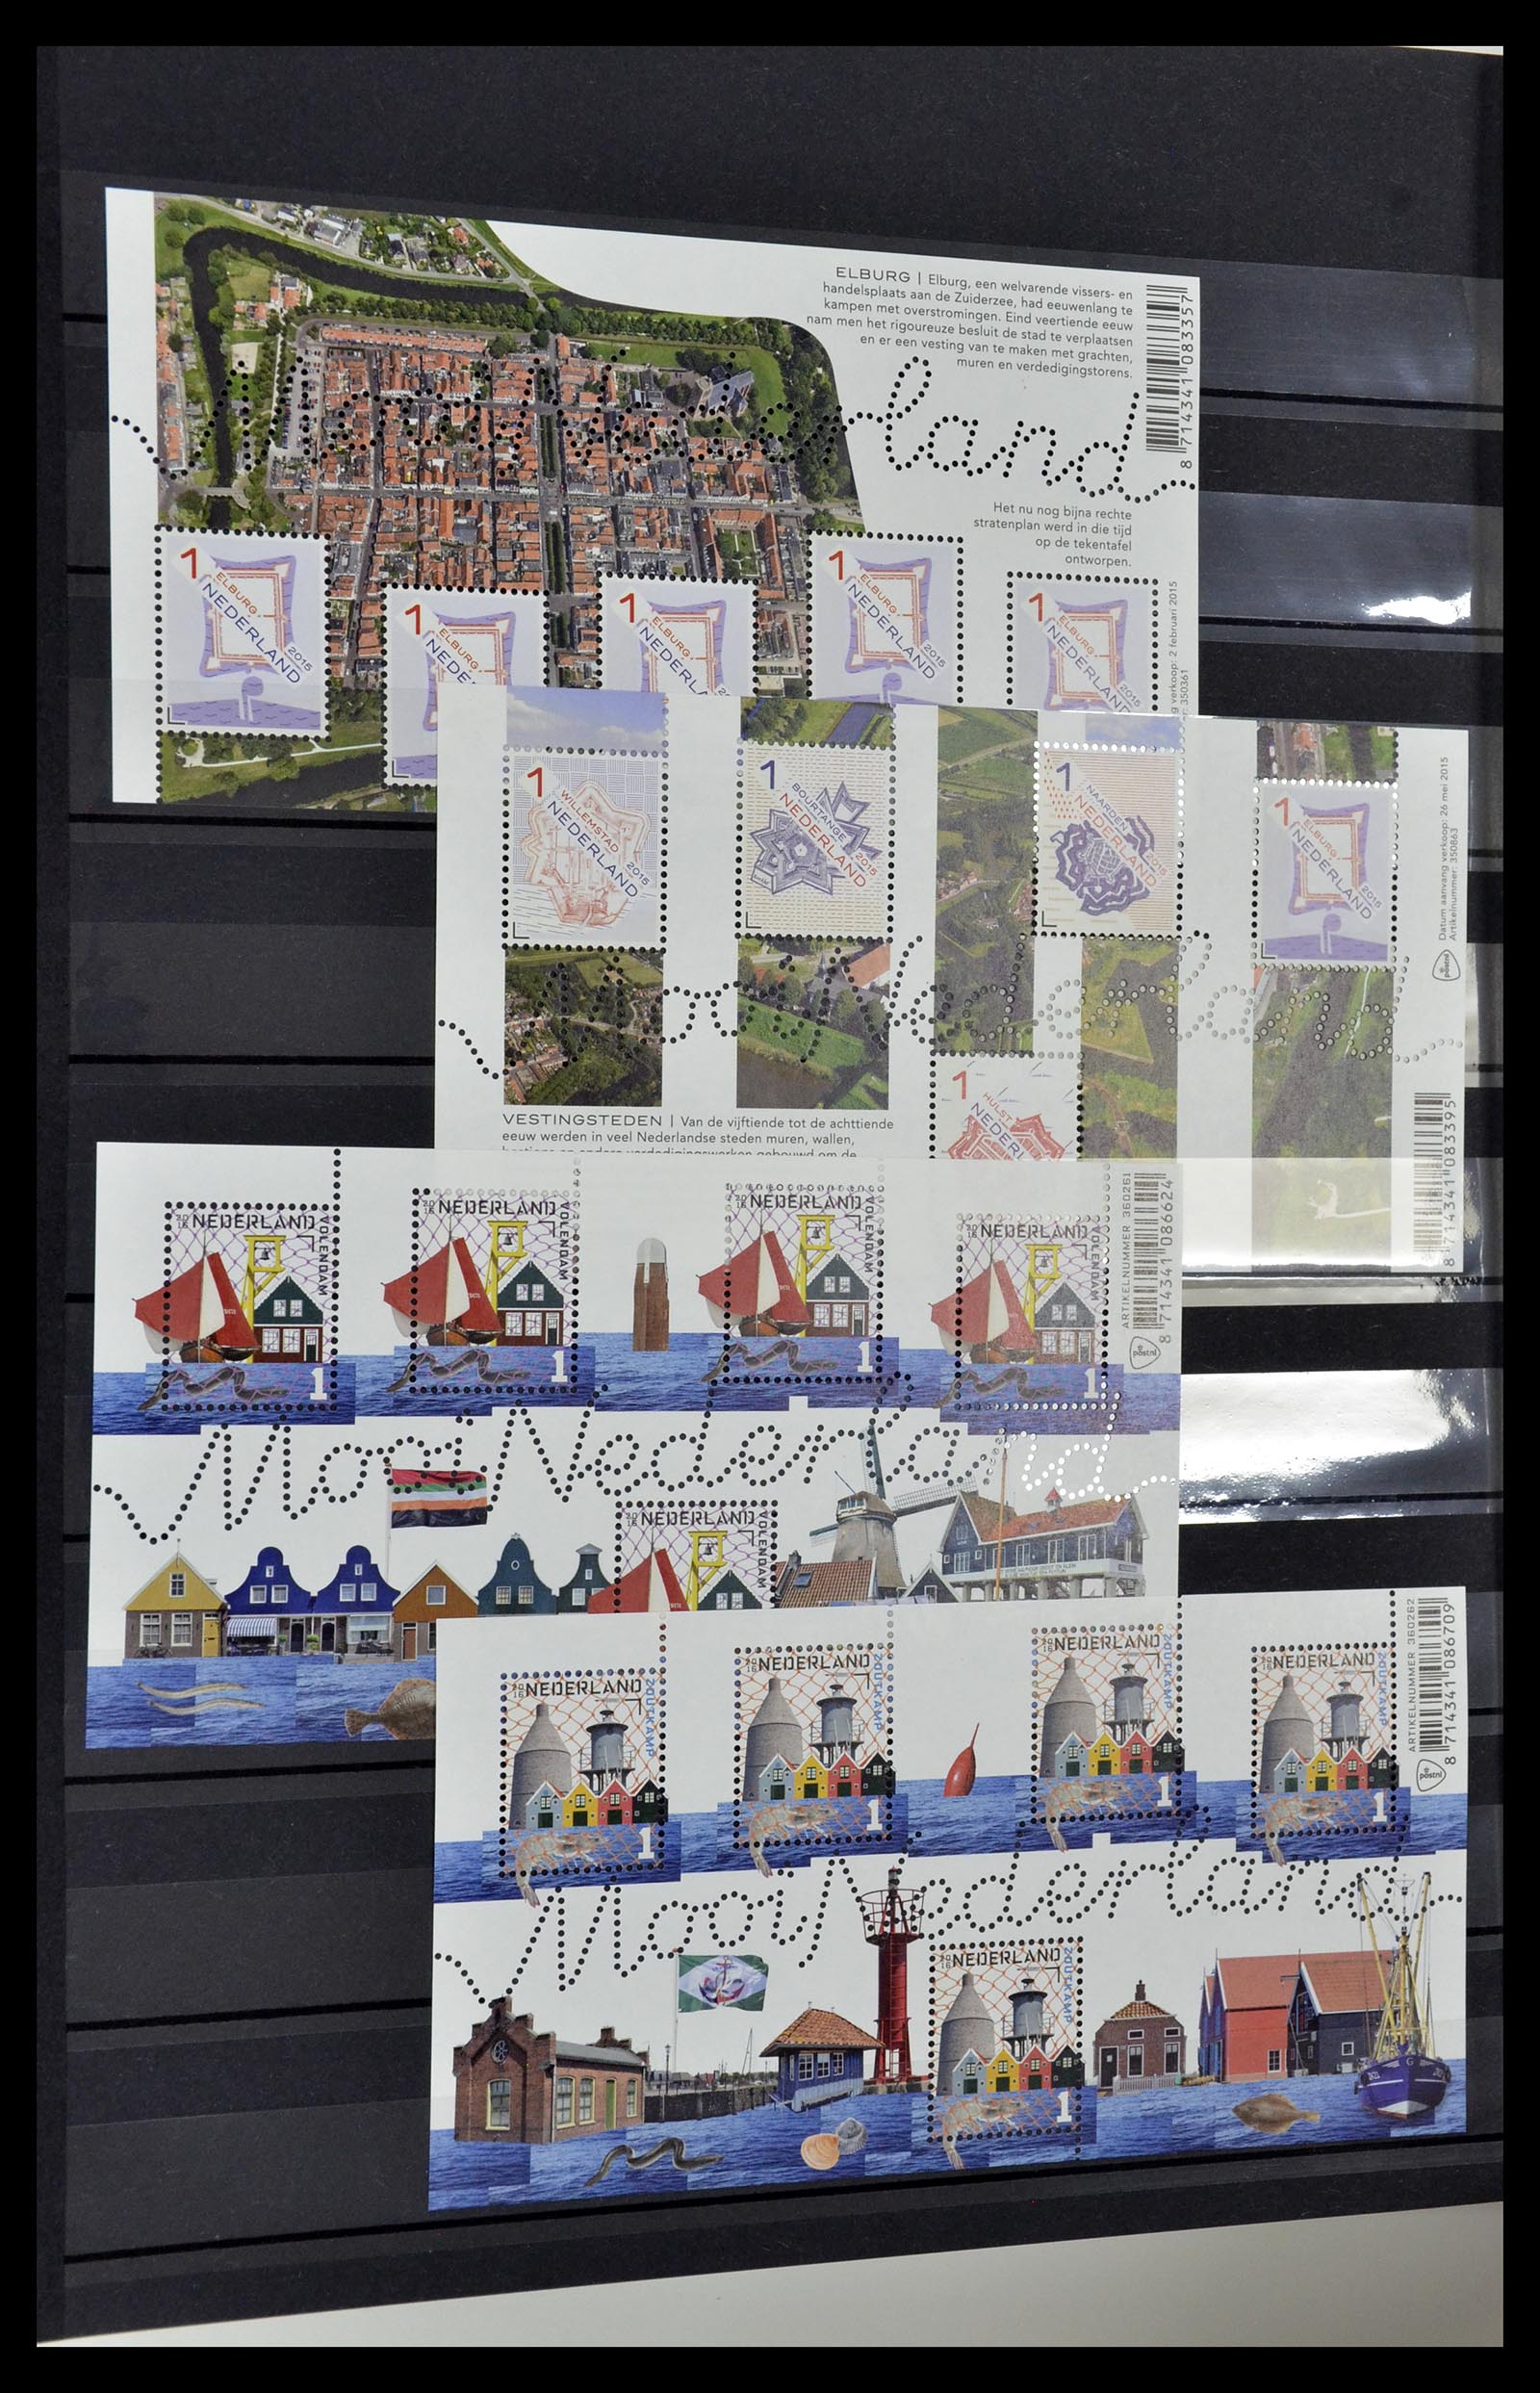 ELBURG | Elburg, een welvarende vissers- en
handelsplaats aan de Zuiderzee, had eeuwenlang te
kampen met overstromingen. Eind veertiende eeuw
nam men het rigoureuze besluit de stad te verplaatsen
en er een vesting van te maken met grachten,
muren en verdedigingstorens.
8 714341 083357
Mooi Nederland
Het nu nog bijna rechte
stratenplan werd in die tijd
op de tekentafel
ontworpen.
1 ELBURG NEDERLAND 2015
1 ELBURG NEDE
1 ELBURG NEDERLA
1 ELBURG NEDERLAND 2015
1 ELBURG NEDERLAND 2015
g verkoop: 2 februari 2015
r: 350361
1 WILLEMSTAD NEDERLAND 2015
1 BOURTANGE NEDERLAND 2015
1 NAARDEN NEDERLAND 2015
1 ELBURG NEDERLAND 2015
Datum aanvang verkoop: 26 mei 2015
Artikelnummer: 350863
postnl
Mooi Nederland
1 HULST NEDERL
VESTINGSTEDEN | Van de vijftiende tot de achttiende
eeuw werden in veel Nederlandse steden muren, wallen,
8 714341 083395
2016 NEDERLAND VOLENDAM 1
2016 NEDERLAND VOLENDAM 1
2016 NEDERLAND VOLENDAM 1
2016 NEDERLAND VOLENDAM 1
ARTIKELNUMMER 360261
8 714341 086624
postnl
Mooi Nederland
2016 NEDERLAND VOLENDAM
2016 NEDERLAND ZOUTKAMP 1
2016 NEDERLAND ZOUTKAMP 1
2016 NEDERLAND ZOUTKAMP 1
2016 NEDERLAND ZOUTKAMP 1
ARTIKELNUMMER 360262
8 714341 086709
postnl
Mooi Nederland
2016 NEDERLAND ZOUTKAMP 1